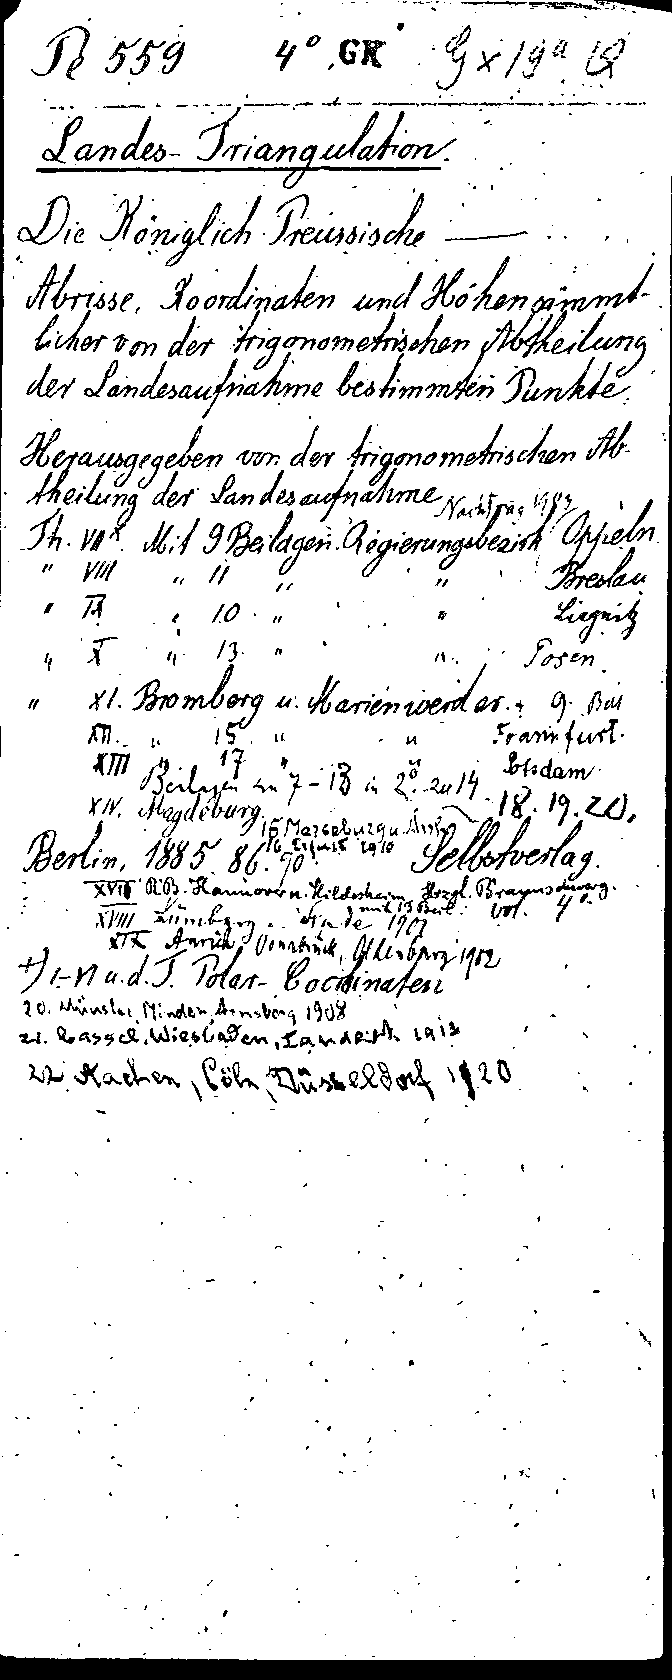 Pe 559 4° GR Gx19a Q
Landes-Triangulation.
Die Königlich Preussische ——
Abrisse, Koordinaten und Höhen sämmt-
licher von der trigonometrischen Abtheilung
der Landesaufnahme bestimmten Punkte.
Herausgegeben von der trigonometrischen Ab-
theilung der Landesaufnahme
Nachtrag
Th. VII+. Mit 9 Beilagen. Regierungsbezirk Oppeln
" VIII " 11 " " Breslau
" IX " 10 " " Liegnitz
" X " 13 " " Posen
" XI. Bromberg u. Marienwerder. 9. Beil
XII. " 15 " " Frankfurt.
XIII " 17 " " Potsdam
Beilagen zu 7-13 in 2°. zu 14 18. 19. 20.
XIV. Magdeburg.
15 Merseburg u.
16. Erfurt 1910
Berlin, 1885. 86. 90 Selbstverlag.
XVII R.B. Hannover u. Hildesheim Herzgl. Braunschweig.
mit 13 Beil. vol. 4°
XVIII Lüneburg. Stade 1901
XIX Aurich, Osnabrück, Oldenburg 1902
+) I-VI u. d. T. Polar-Coordinaten
20. Münster, Minden, Arnsberg 1908
21. Cassel, Wiesbaden, 1913
22 Aachen, Cöln, Düsseldorf 1920